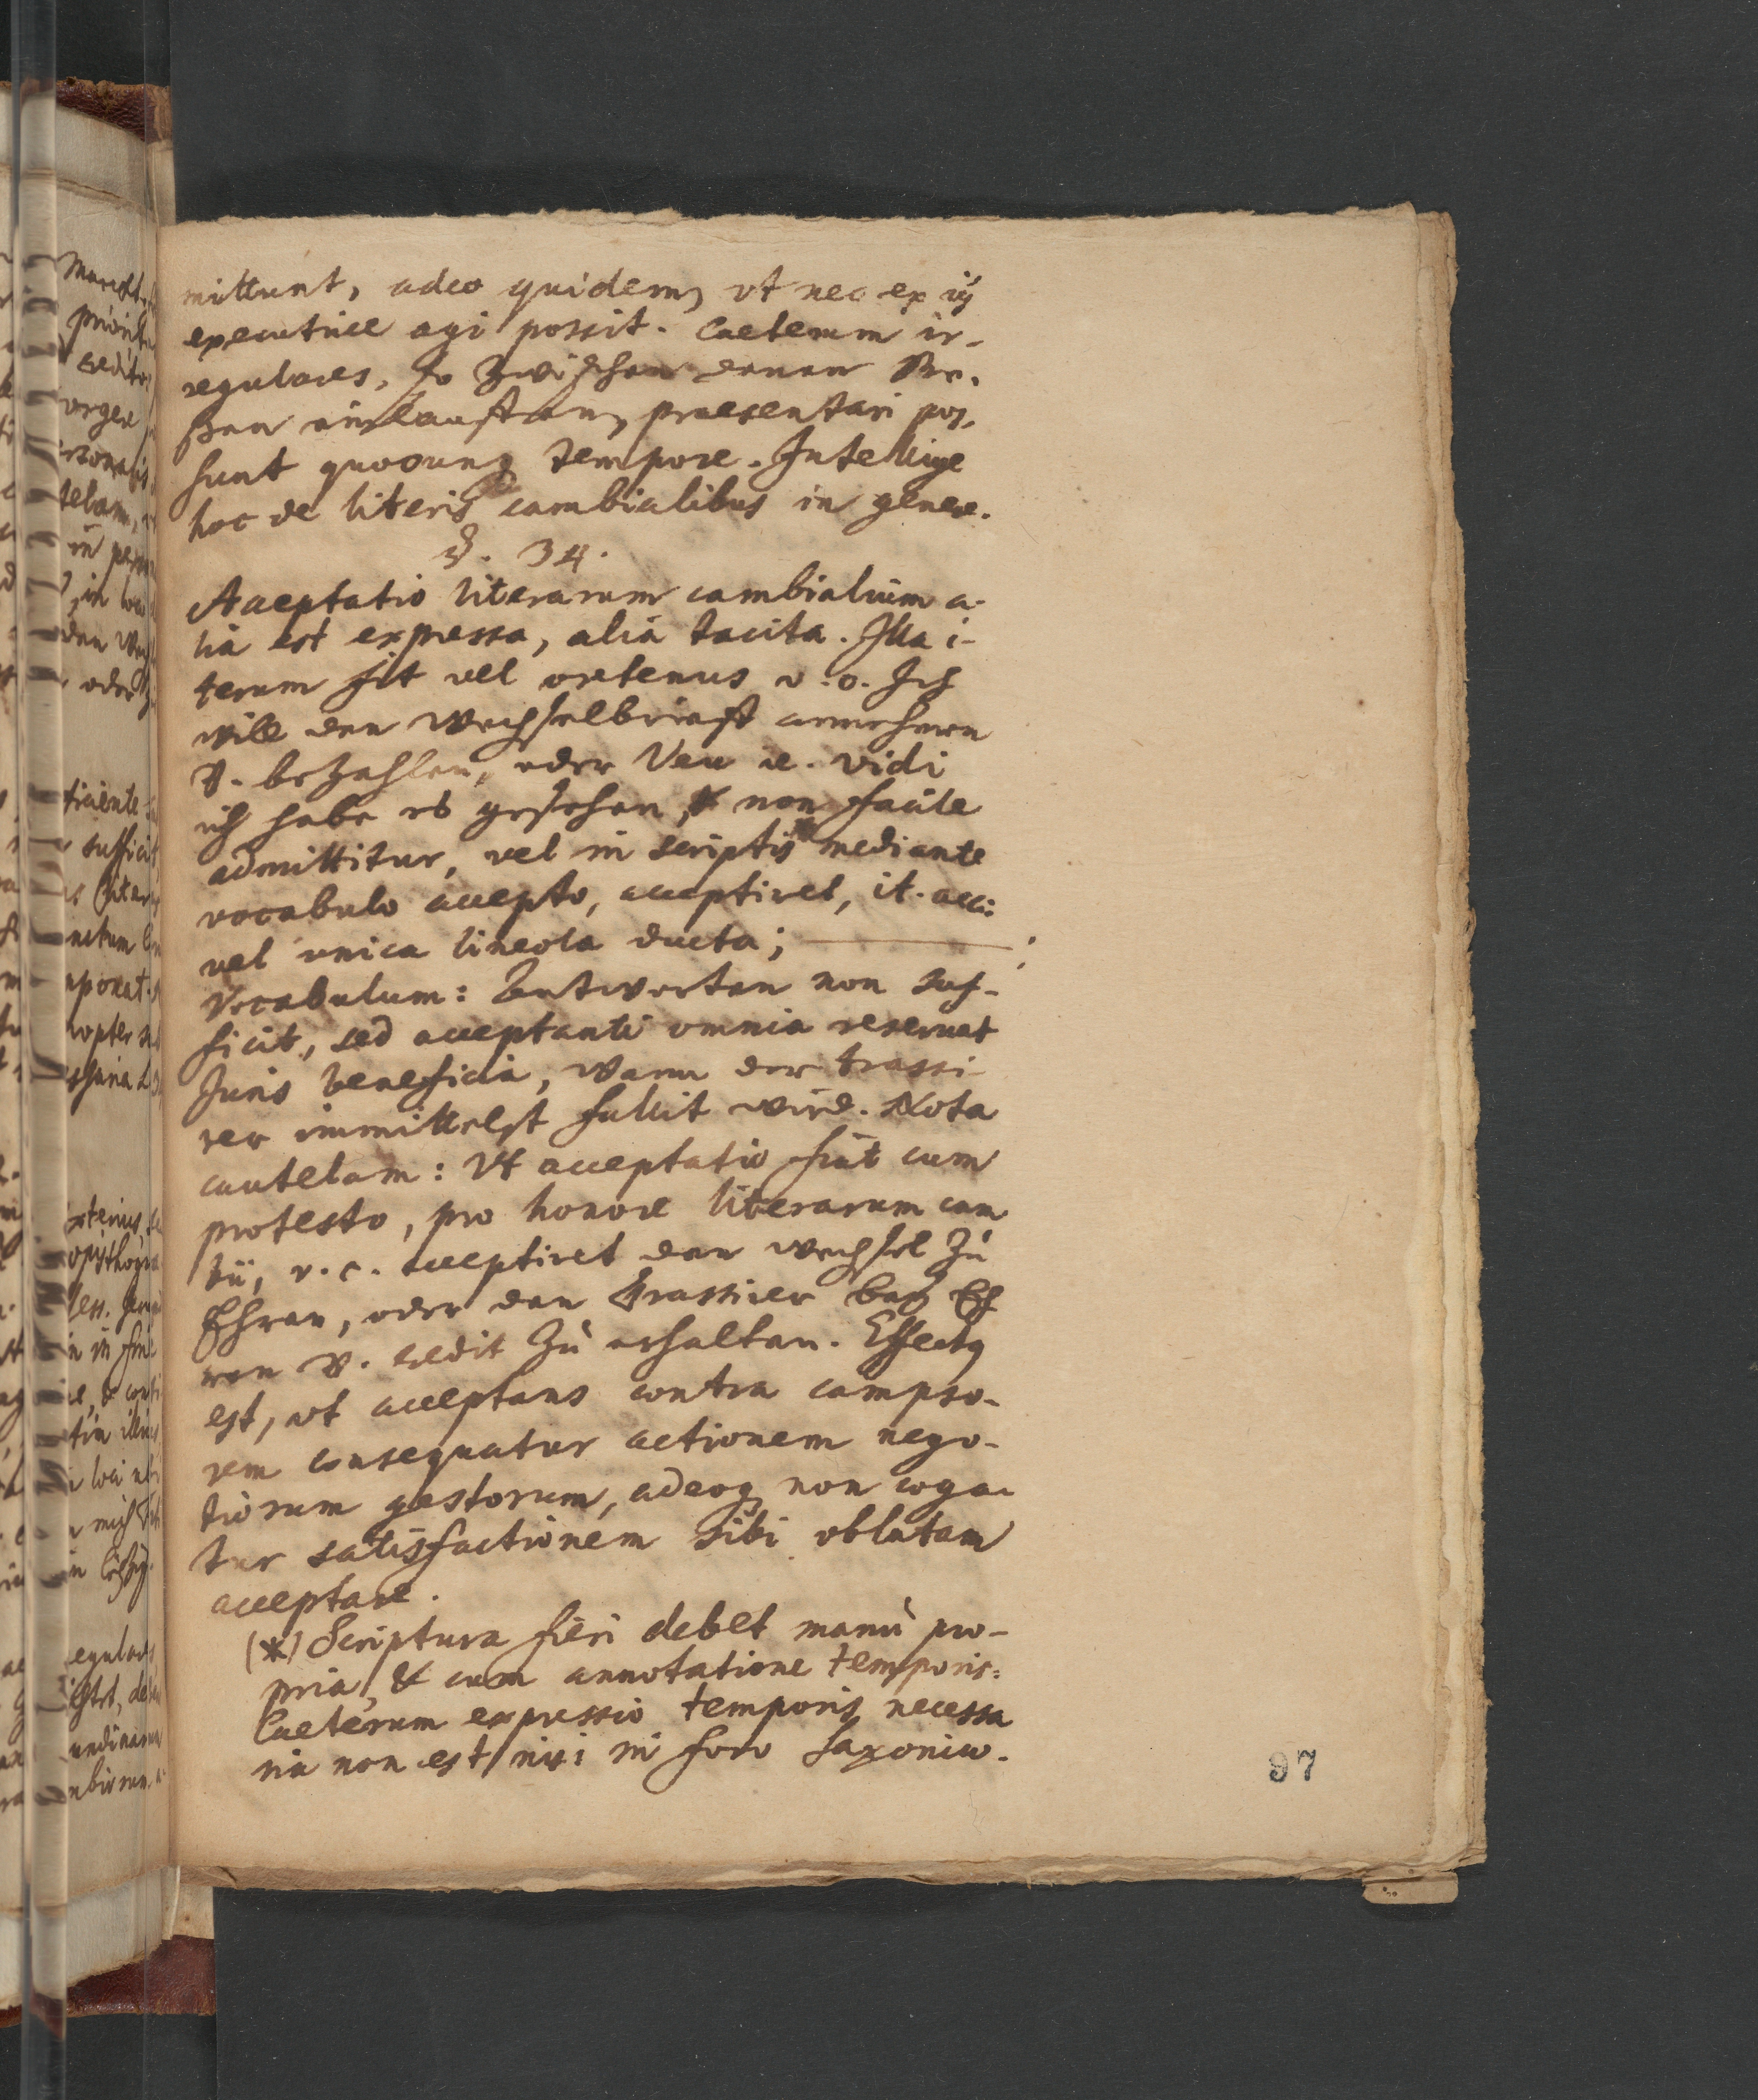 mittunt, adeo quidem, vt nec ex iis
executive agi possit. Caeterum ir-
regulares, so zwischen denen Me-
ßen einlauffen, praesentari pos-
sunt quocunq tempore. Intellige
hoc de literis cambialibus in genere.
§. 34.
Acceptatio literarum cambialium a-
lia est expressa, alia tacita. Illa i-
terum fit vel oretenus v. o. Ich
will den Wechselbrieff annehmen
u. bezahlen, oder Veu ie. vidi
ich habe es gesehen, & non facile
admittitur, vel in scriptis * mediante
vocabulo accepto, acceptiret, it. acc:
vel unica lineola ducta;
Vocabulum: Antworten non suf-
ficit, sed acceptanti omnia reservat
Juris beneficia, wann der trassi-
rer immittelst fallit wird. Nota
cautelam: Vt acceptatio fiat cum
protesto, pro honore literarum cam
bii, v. c. acceptiret den Wechsel zu
Ehren, oder den Trassirer bey Eh
ren u. Credit zu erhalten. Effectq
est, vt acceptans contra campso-
rem consequatur actionem nego-
tiorum gestorum, adeoq non coga-
tur satisfactionem sibi oblatam
acceptare.
(*) Scriptura fieri debet manu pro-
pria, & cum annotatione temporis:
Caeterum expressio temporis necessa
ria non est nisi in foro Saxonico.
97